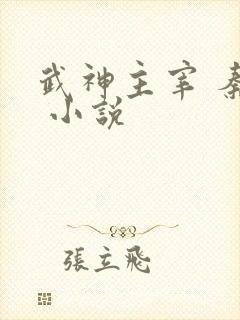 武神主宰 秦
小說
張立飛